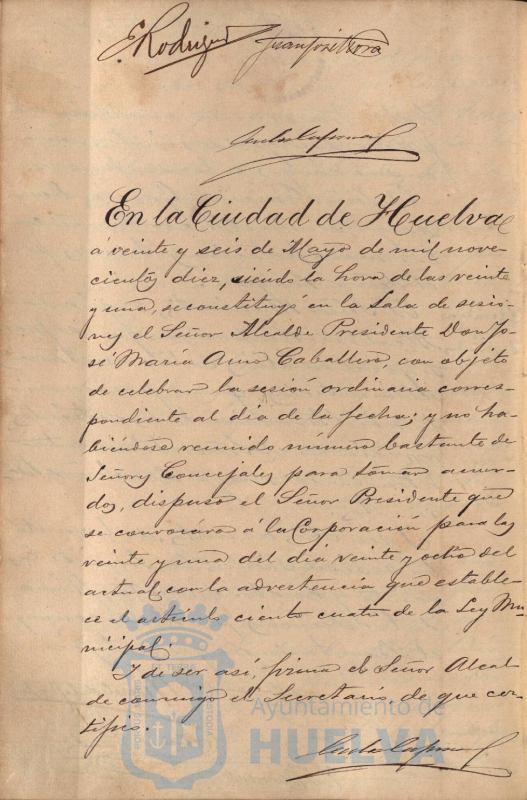 E. Rodriguez Juan José Mora
En la Ciudad de Huelva
á veinte y seis de Mayo de mil nove-
cientos diez, siendo la hora de las veinte
y una, se constituyó en la Sala de sesio-
nes el Señor Alcalde Presidente Don Jo-
sé María Caballero, con objeto
de celebrar la sesión ordinaria corres-
pondiente al dia de la fecha; y no ha-
biéndose reunido número bastante de
Señores Concejales para tomar acuer-
dos, dispuso el Señor Presidente que
se convocára á la Corporación para las
veinte y una del dia veinte y ocho del
actual, con la advertencia que estable-
ce el artículo ciento cuatro de la Ley Mu-
nicipal.
Y de ser así, firma el Señor Alcal-
de conmigo el Secretario, de que cer-
tifico.
Ayuntamiento de
HUELVA